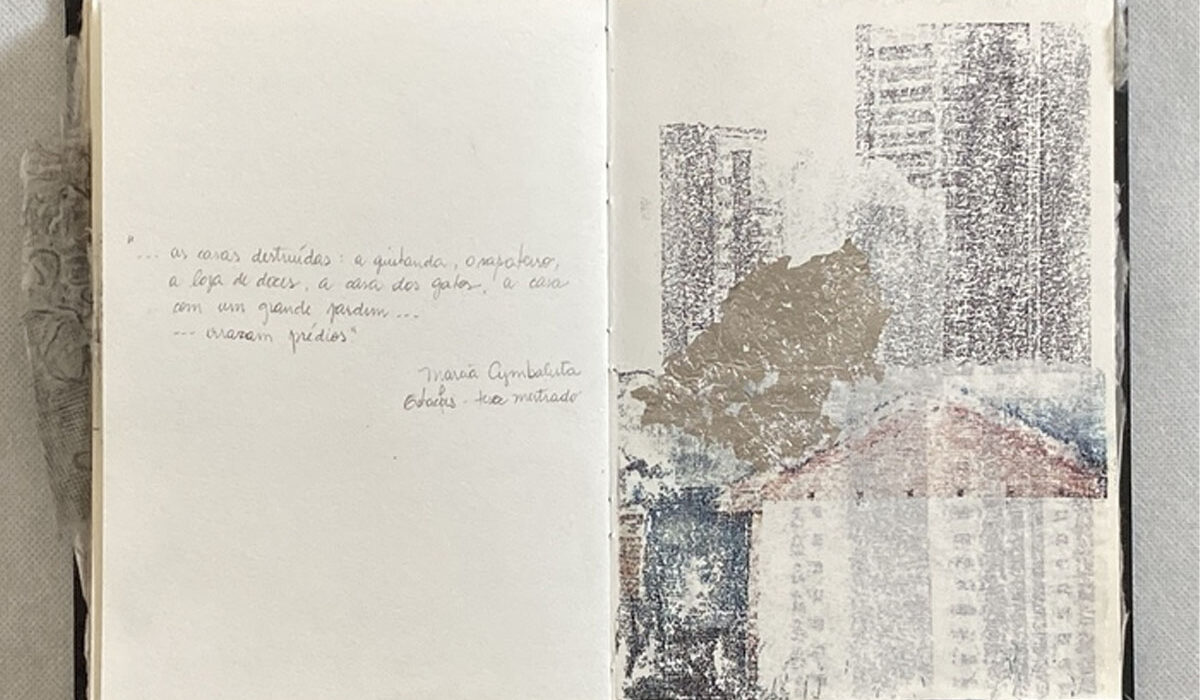 "... as casas destruídas: a quitanda, o sapateiro,
a loja de doces, a casa dos gatos, a casa
com um grande jardim ...
--- arrazam prédios"
Cymbalista
- mestrado